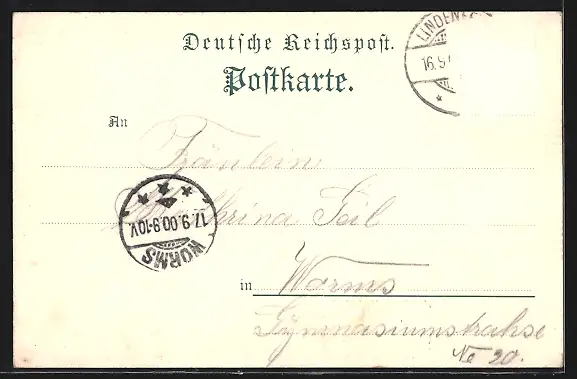 Deutsche Reichspost.
Postkarte.
LINDENF
16.9
An
Fräulein
Kathrina Seil
17.9.00.9-10V
WORMS
in Worms
Gymnasiumstrahse
No 20.